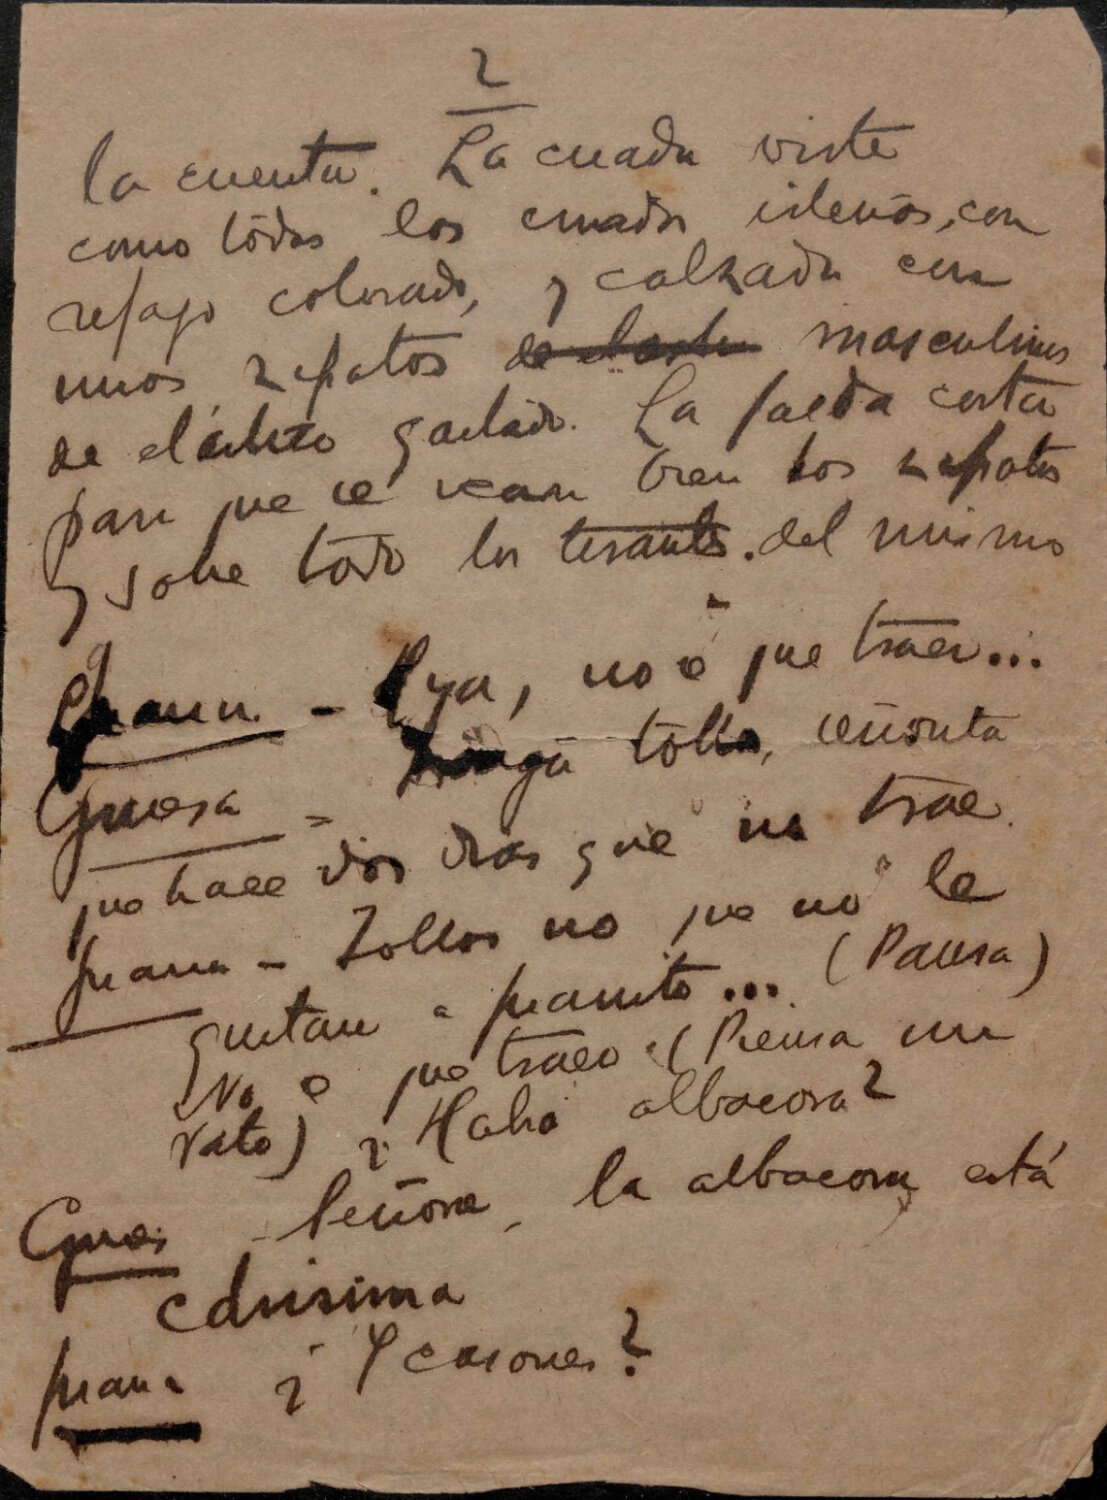 2
la cuenta. La criada viste
como todas las criadas isleñas, con
refajo colorado, y calzada con
unos zapatos de elastico masculinos
de elástico gastado. La falda corta
para que se vean bien los zapatos
y sobre todo los tirantes del mismo
Juana - Oya, no sé que traer...
tollos, señorita
que hace dos dias que no trae.
Juana - Tollos no que no le
gustan a Juanito... (Pausa)
No sé que traer. (Piensa un
rato) ¿Habrá albacora?
Señora, la albacora está
carisima
Juana ¿Y casones?